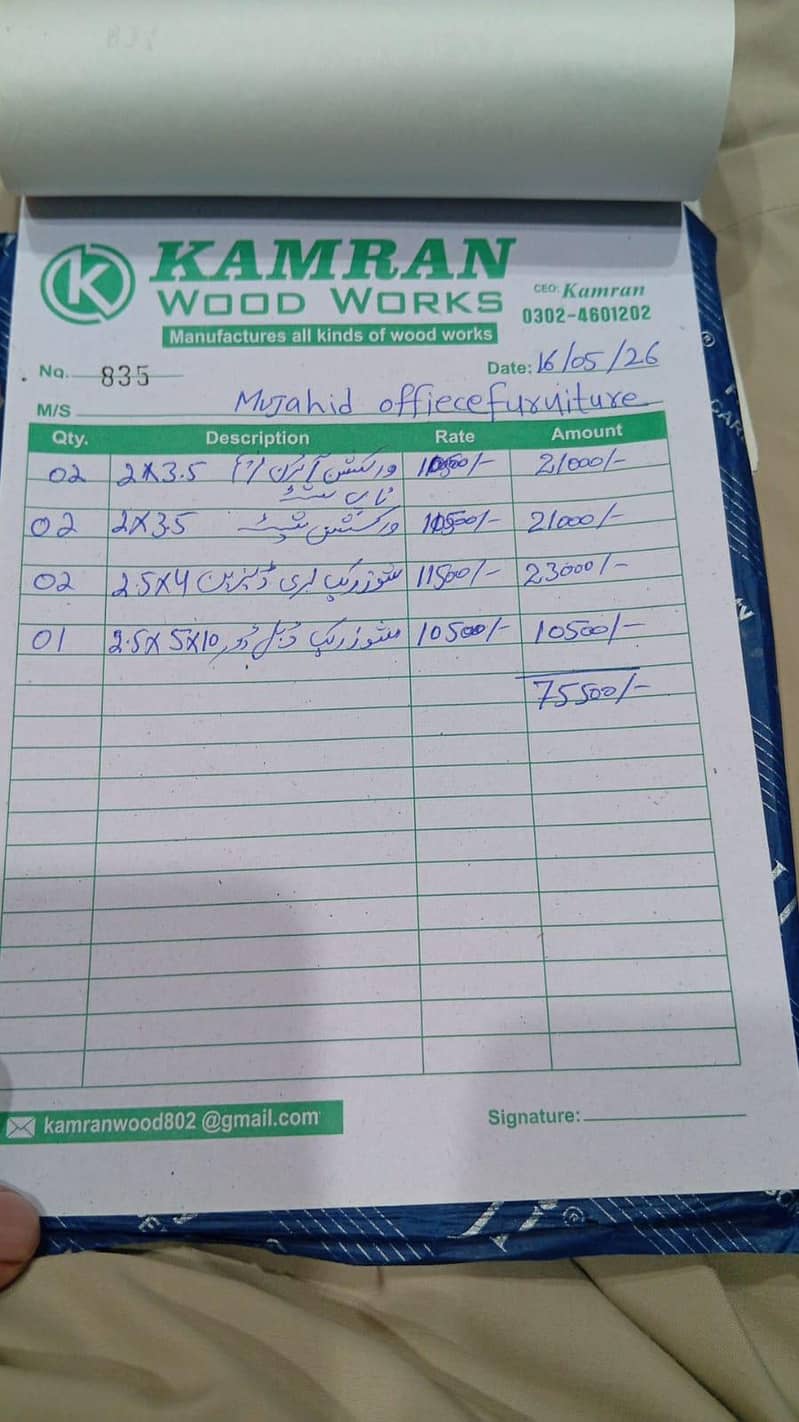 K KAMRAN
WOOD WORKS
Manufactures all kinds of wood works
CEO: Kamran
0302-4601202
No. 835
Date: 16/05/26
M/S Mujahid offiecefuruiture
Qty. Description Rate Amount
02 2X3.5 ورکسٹیشن آئرن 10500/- 21000/-
ٹاپ شیٹ
02 2X35 ورکسٹیشن شیٹ 10500/- 21000/-
02 2.5X4 شوز ریک ڈیزین 11500/- 23000/-
01 2.5X5X10 شوز ریک ڈبل ڈور 10500/- 10500/-
75500/-
kamranwood802@gmail.com
Signature: